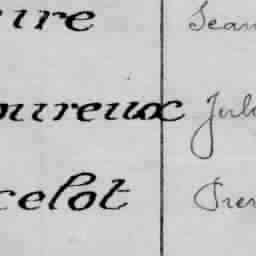 ure Jean
oureux Jul
celot Pier